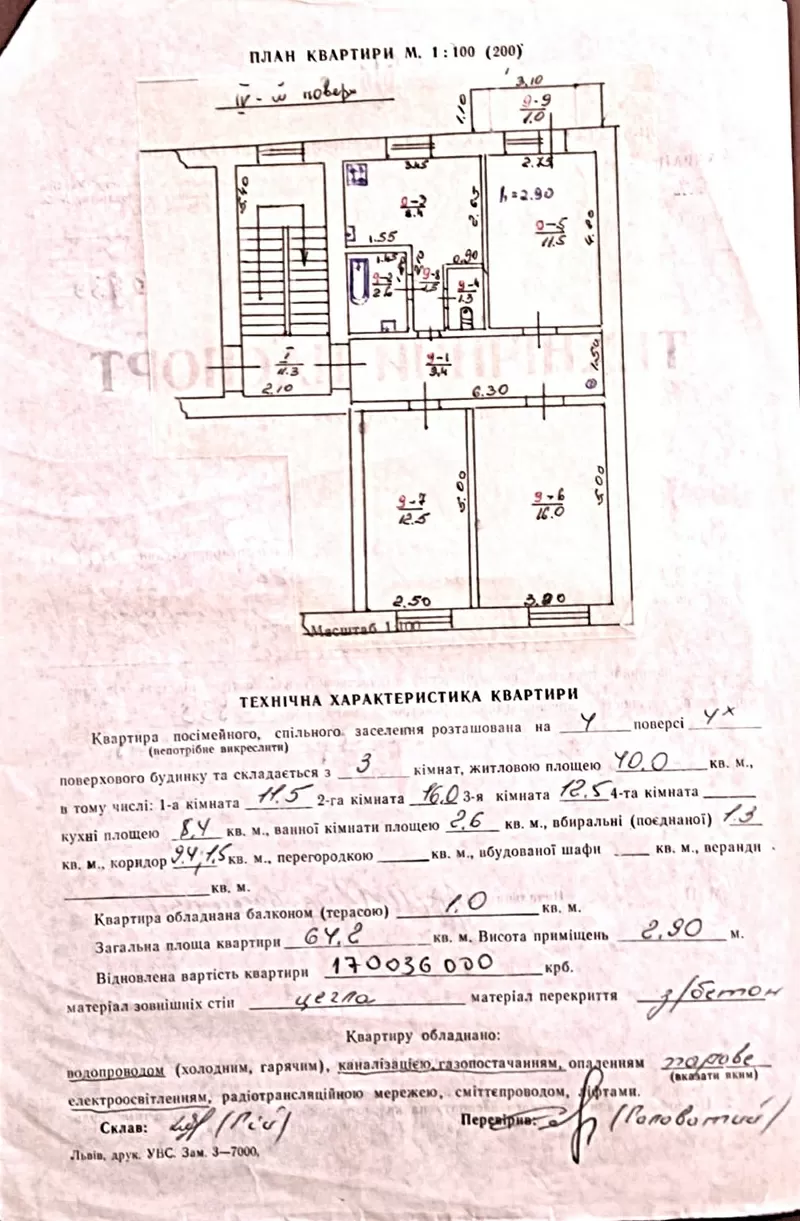 ПЛАН КВАРТИРИ М. 1:100 (200)
IV-й поверх
3.10
1.10
9-9
1.0
3.45
2.75
5.40
9-2
8.4
2.65
h=2.90
9-5
11.5
4.20
1.55
1.45
0.90
9-3
2.6
9-8
1.5
9-4
1.3
I
11.3
2.10
9-1
9.4
6.30
1.50
9-7
12.5
5.00
9-6
16.0
5.00
2.50
3.20
Масштаб 1:100
ТЕХНІЧНА ХАРАКТЕРИСТИКА КВАРТИРИ
Квартира посімейного, спільного заселення розташована на 4 поверсі 4х
(непотрібне викреслити)
поверхового будинку та складається з 3 кімнат, житловою площею 40.0 кв. м.,
в тому числі: 1-а кімната 11.5 2-га кімната 16.0 3-я кімната 12.5 4-та кімната
кухні площею 8,4 кв. м., ванної кімнати площею 2,6 кв. м., вбиральні (поєднаної) 1.3
кв. м., коридор 9.4, 1,5 кв. м., перегородкою кв. м., вбудованої шафи кв. м., веранди
кв. м.
Квартира обладнана балконом (терасою) 1.0 кв. м.
Загальна площа квартири 64,2 кв. м. Висота приміщень 2,90 м.
Відновлена вартість квартири 170036000 крб.
матеріал зовнішніх стін цегла матеріал перекриття з/бетон
Квартиру обладнано:
водопроводом (холодним, гарячим), каналізацією, газопостачанням, опаленням парове
(вказати яким)
електроосвітленням, радіотрансляційною мережею, сміттєпроводом, ліфтами.
Склав: Перевірив: (Головатий)
Львів, друк. УВС. Зам. 3—7000,